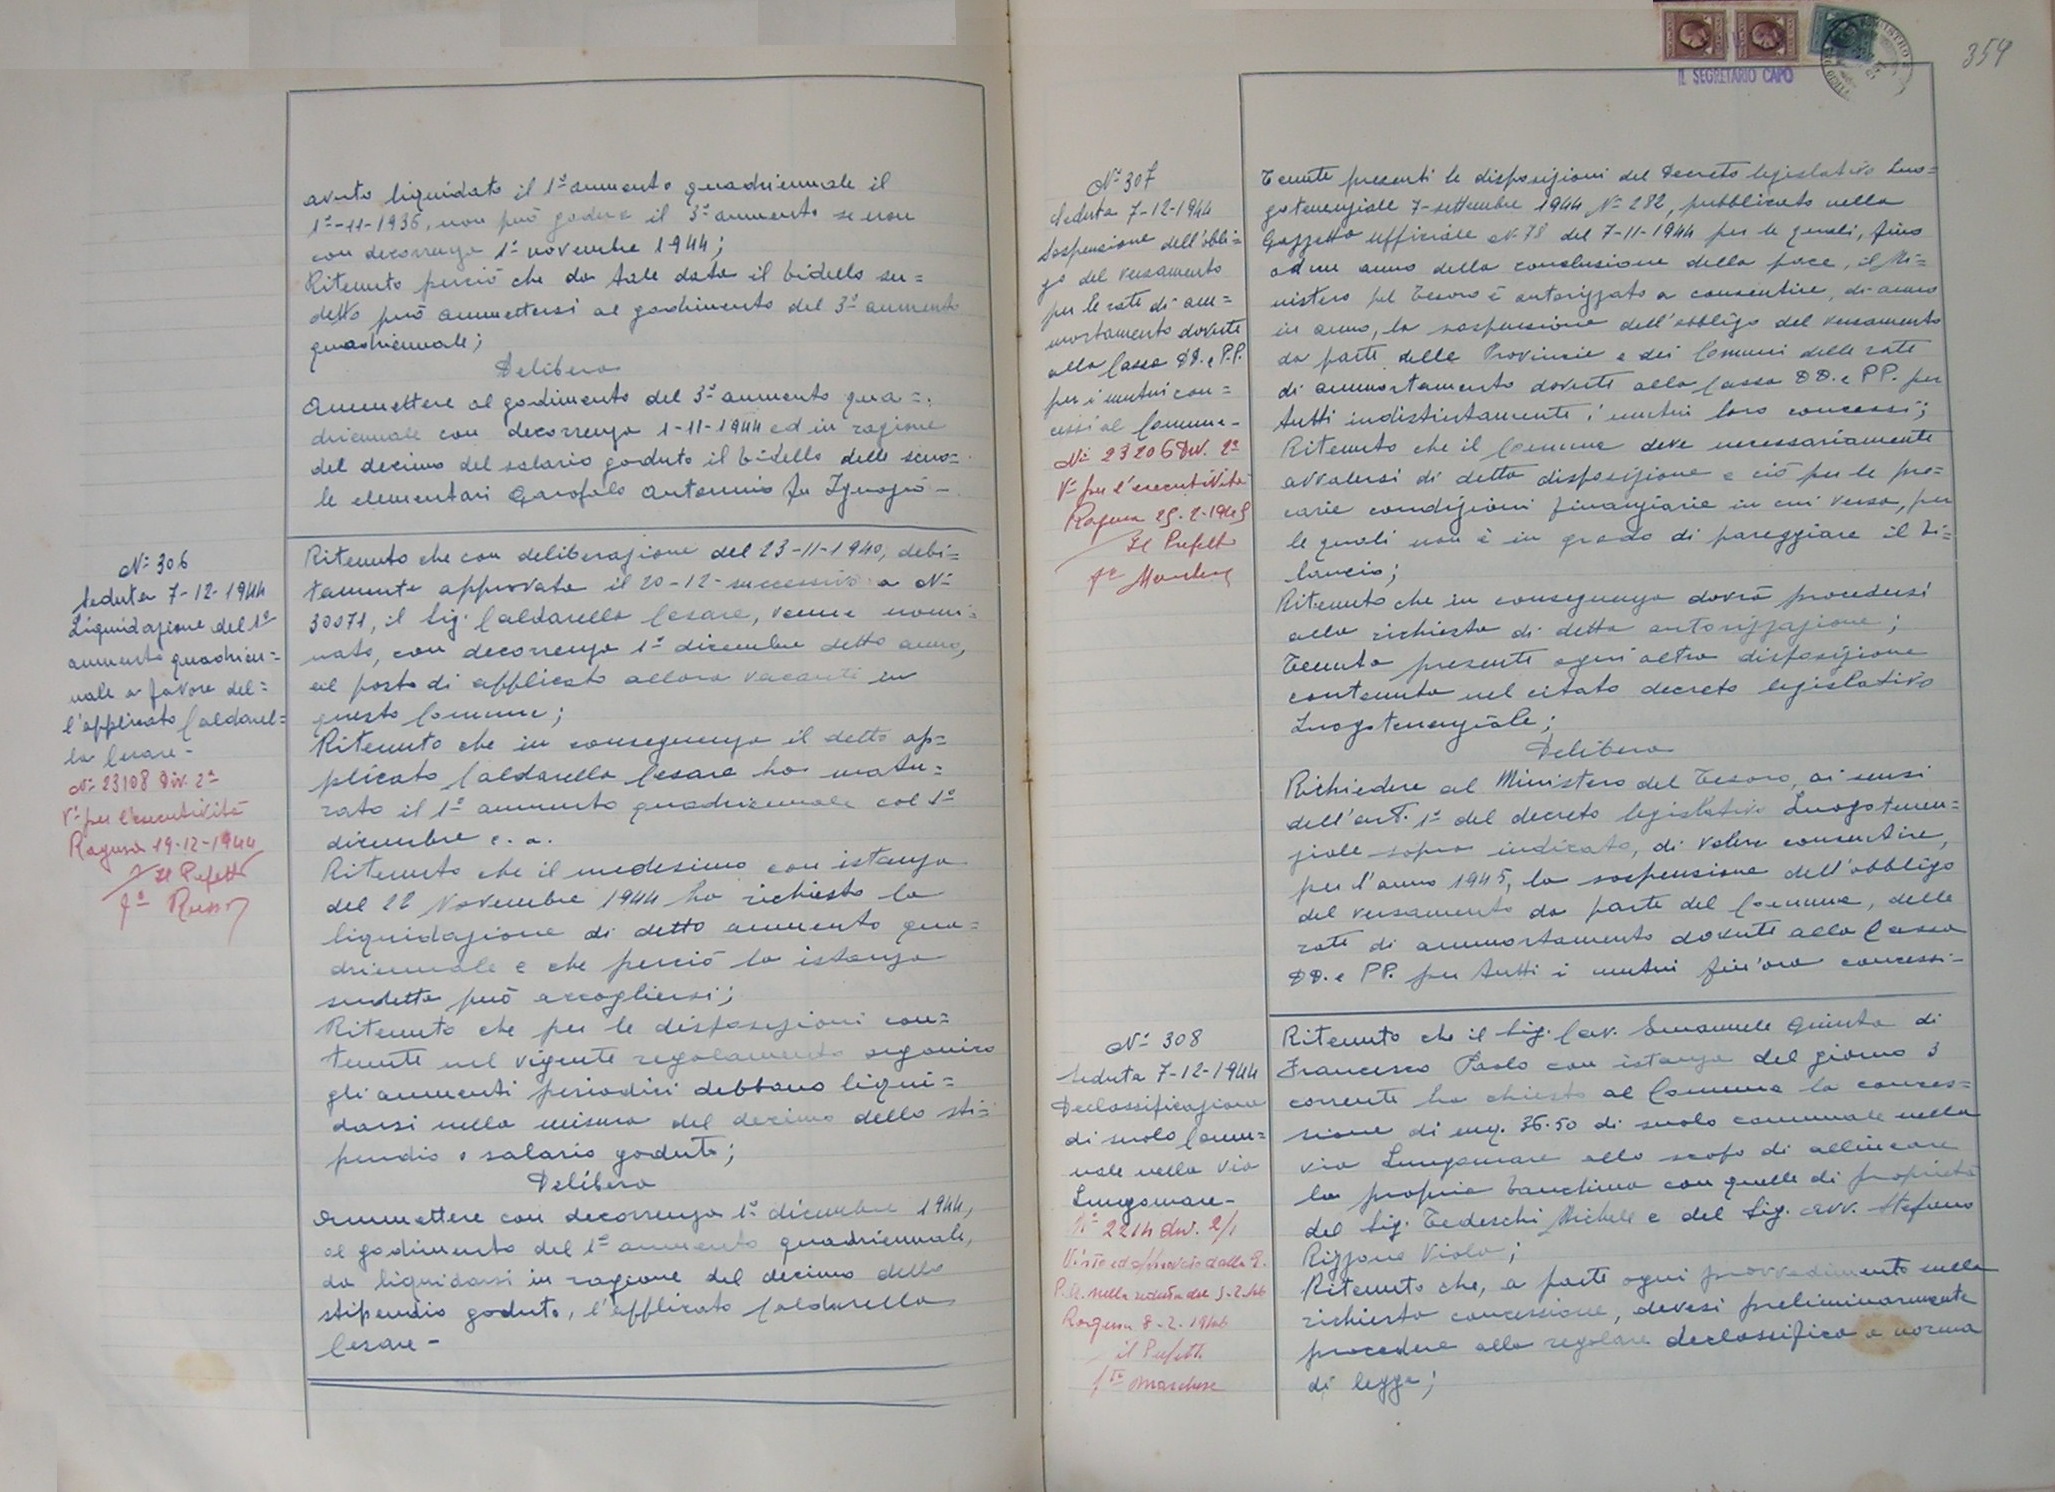 avuto liquidato il 1° aumento quadriennale il
1°-11-1936, non può godere il 3° aumento se non
con decorrenza 1° novembre 1944;
Ritenuto perciò che da tale data il bidello su=
detto può ammettersi al godimento del 3° aumento
quadriennale;
Delibera
Ammettere al godimento del 3° aumento qua=
driennale con decorrenza 1-11-1944 ed in ragione
del decimo del salario goduto il bidello delle scuo=
le elementari Garofalo Antonino fu Ignazio -
N° 306
Seduta 7-12-1944
Liquidazione del 1°
aumento quadrien=
nale a favore del=
l'applicato Caldarel=
la Cesare -
N° 23108 Div. 2ª
V° per l'esecutività
Ragusa 19-12-1944
Il Prefetto
f° Russo
Ritenuto che con deliberazione del 23-11-1940, debi=
tamente approvata il 20-12-successivo a N°
30071, il Sig. Caldarella Cesare, venne nomi=
nato, con decorrenza 1° dicembre detto anno,
al posto di applicato allora vacante in
questo Comune;
Ritenuto che in conseguenza il detto ap=
plicato Caldarella Cesare ha matu=
rato il 1° aumento quadriennale col 1°
dicembre c. a.
Ritenuto che il medesimo con istanza
del 22 Novembre 1944 ha richiesto la
liquidazione di detto aumento qua=
driennale e che perciò la istanza
sudetta può accogliersi;
Ritenuto che per le disposizioni con=
tenute nel vigente regolamento organico
gli aumenti periodici debbano liqui=
darsi nella misura del decimo dello sti=
pendio o salario goduto;
Delibera
Ammettere con decorrenza 1° dicembre 1944,
al godimento del 1° aumento quadriennale,
da liquidarsi in ragione del decimo dello
stipendio goduto, l'applicato Caldarella
Cesare -
IL SEGRETARIO CAPO
354
N° 307
Seduta 7-12-1944
Sospensione dell'obbli=
go del versamento
per le rate di am=
mortamento dovute
alla Cassa DD. e P.P.
per i mutui con=
cessi al Comune -
N° 23206 Div. 2ª
V° per l'esecutività
Ragusa 25-2-1945
Il Prefetto
Tenute presenti le disposizioni del Decreto legislativo Luo=
gotenenziale 7-settembre 1944 N° 282, pubblicato nella
Gazzetta Ufficiale N. 78 del 7-11-1944 per le quali, fino
ad un anno dalla conclusione della pace, il Mi=
nistero pel Tesoro è autorizzato a consentire, di anno
in anno, la sospensione dell'obbligo del versamento
da parte delle Provincie e dei Comuni delle rate
di ammortamento dovute alla Cassa DD. e PP. per
tutti indistintamente i mutui loro concessi;
Ritenuto che il Comune deve necessariamente
avvalersi di detta disposizione e ciò per le pre=
carie condizioni finanziarie in cui versa, per
le quali non è in grado di pareggiare il bi=
lancio;
Ritenuto che in conseguenza dovrà procedersi
alla richiesta di detta autorizzazione;
Tenuta presente ogni altra disposizione
contenuta nel citato decreto legislativo
Luogotenenziale;
Delibera
Richiedere al Ministero del Tesoro, ai sensi
dell'art. 1° del decreto legislativo Luogotenen=
ziale sopra indicato, di volere consentire,
per l'anno 1945, la sospensione dell'obbligo
del versamento da parte del Comune, delle
rate di ammortamento dovute alla Cassa
DD. e PP. per tutti i mutui fin'ora concessi -
N° 308
Seduta 7-12-1944
Declassificazione
di suolo Comu=
nale nella via
Lungomare -
N° 2214 Div. 2/1
Visto ed approvato dalla G.
P.A. nella seduta del 5-2-46
Ragusa 8-2-1946
il Prefetto
f.to Marchese
Ritenuto che il Sig. Cav. Emanuele Giunta di
Francesco Paolo con istanza del giorno 3
corrente ha chiesto al Comune la conces=
sione di mq. 36.50 di suolo comunale nella
via Lungomare allo scopo di allineare
la propria banchina con quelle di proprietà
del Sig. Tedeschi Michele e del Sig. avv. Stefano
Rizzone Viola;
Ritenuto che, a parte ogni provvedimento sulla
richiesta concessione, devesi preliminarmente
procedere alla regolare declassifica a norma
di legge;